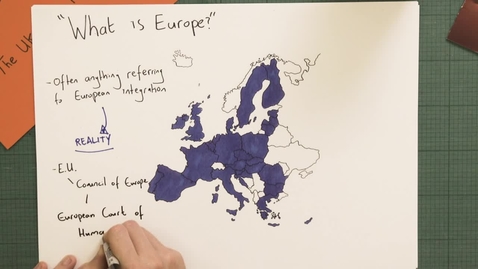 "What is Europe?"
The UK
- Often anything referring
to European integration
REALITY
- E.U.
Council of Europe
European Court of
Huma